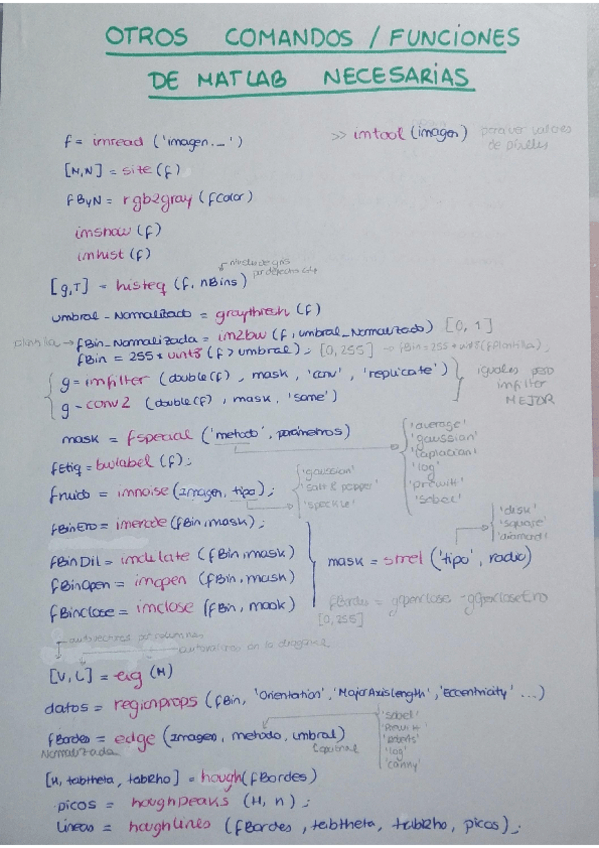 OTROS COMANDOS / FUNCIONES
DE MATLAB NECESARIAS
f = imread ('imagen._')
>> imtool (imagen) para ver valores de pixeles
[M,N] = site (f)
fByN = rgb2gray (fcolor)
imshow (f)
imhist (f)
niveles de gris
por defecto 64
[g,T] = histeq (f, nBins)
umbral-Normalizado = graythresh (f)
plantilla → fBin_Normalizada = im2bw (f, umbral_Normalizado) [0, 1]
fBin = 255 * uint8 (f > umbral); [0, 255] → fBin = 255 * uint8 (fPlantilla).
g = imfilter (double(f), mask, 'conv', 'replicate')
g = conv2 (double(f), mask, 'same')
iguales pero
imfilter
MEJOR
mask = fspecial ('metodo', parámetros)
'average'
'gaussian'
'laplacian'
'log'
'prewitt'
'sobel'
fEtiq = bwlabel (f);
fruido = imnoise (imagen, tipo);
'gaussian'
'salt & pepper'
'speckle'
fBinEro = imerode (fBin, mask);
fBinDil = imdilate (fBin, mask)
fBinOpen = imopen (fBin, mask)
fBinclose = imclose (fBin, mask)
mask = strel ('tipo', radio)
'disk'
'square'
'diamond'
fBordes = gopenclose - gopencloseEro
[0, 255]
autovectores por columnas
autovalores en la diagonal
[V, L] = eig (M)
datos = regionprops (fBin, 'Orientation', 'MajorAxisLength', 'Eccentricity' ...)
fBordes = edge (imagen, metodo, umbral)
Normalizada
Opcional
'sobel'
'Prewitt'
'roberts'
'log'
'canny'
[H, tabtheta, tabRho] = hough (fBordes)
picos = houghpeaks (H, n);
lineas = houghlines (fBordes, tabtheta, tabRho, picos);